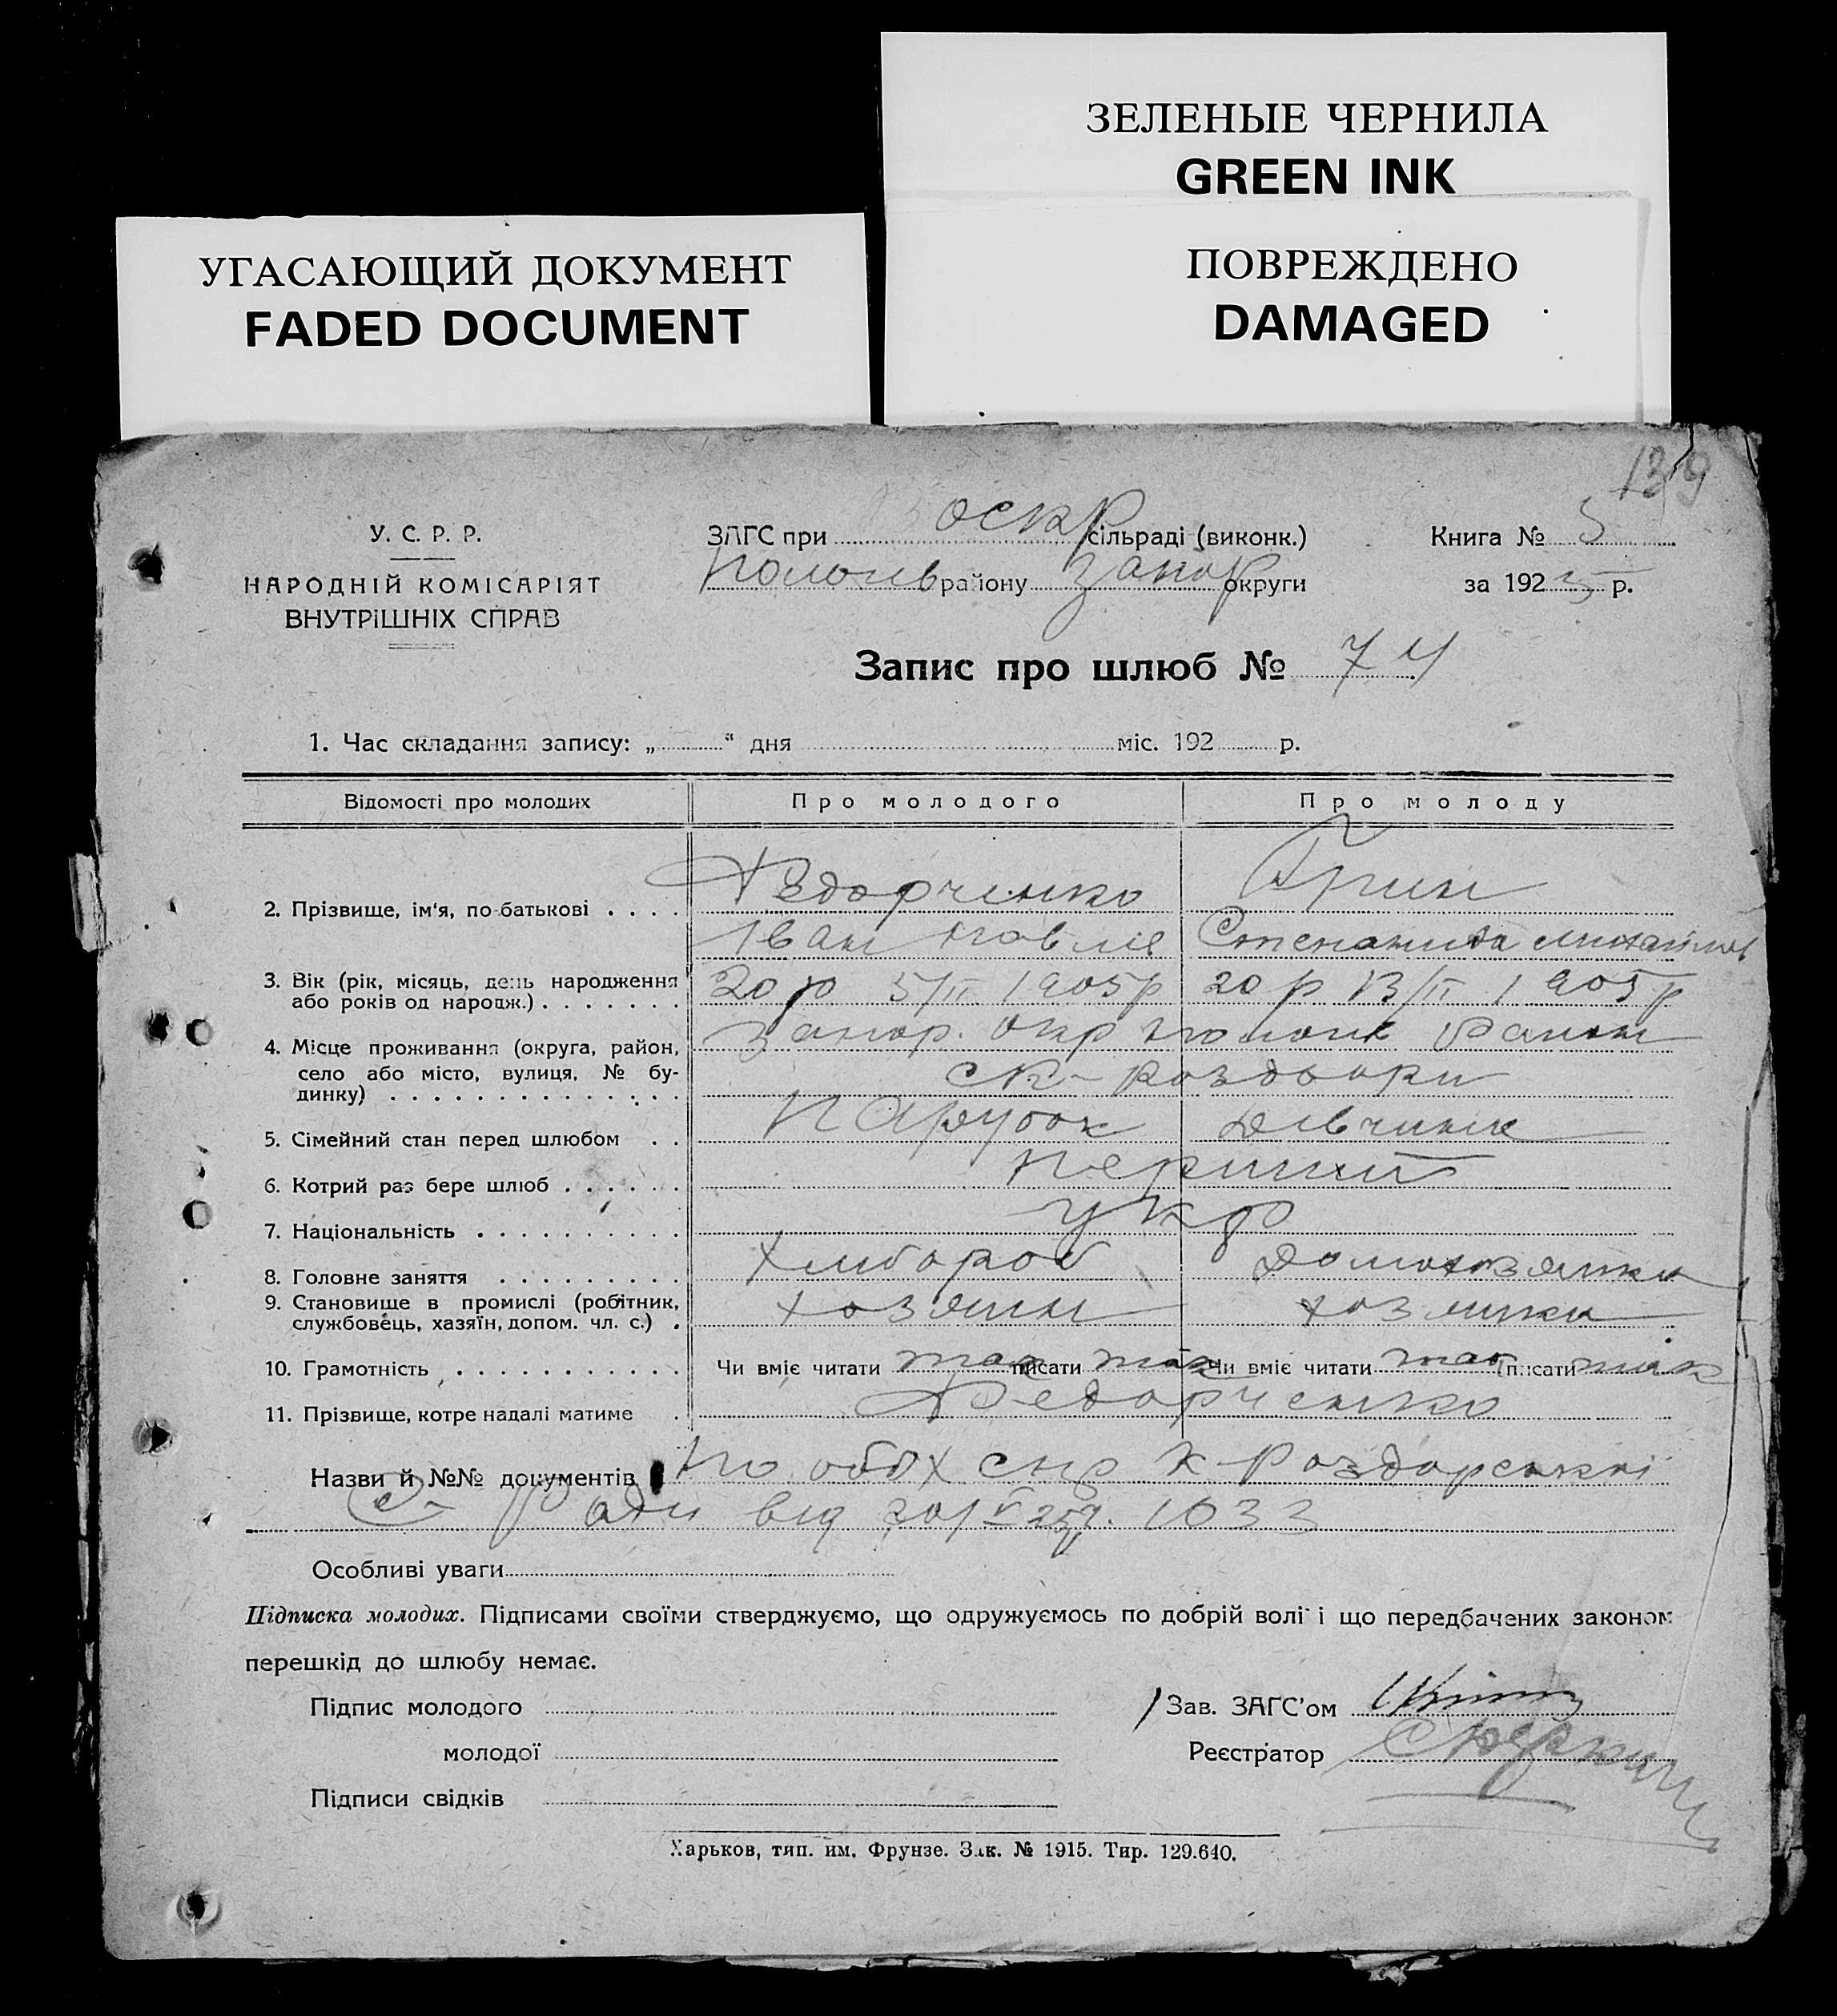 ЗЕЛЕНЫЕ ЧЕРНИЛА
GREEN INK
УГАСАЮЩИЙ ДОКУМЕНТ
FADED DOCUMENT
ПОВРЕЖДЕНО
DAMAGED
139
У. С. Р. Р.
НАРОДНІЙ КОМІСАРІЯТ
ВНУТРІШНІХ СПРАВ
ЗАГС при Воскр сільраді (виконк.)
Пологів району Запор округи
Книга № 5
за 1925 р.
Запис про шлюб № 74
1. Час складання запису: „ “ дня міс. 192 р.
Відомості про молодих Про молодого Про молоду
2. Прізвище, ім‘я, по-батькові Федорченко
Іван Павлів Степанида Михайлов
3. Вік (рік, місяць, день народження або років од народж.) 20 р 5/II 1905р 20 р 13/II 1905р
4. Місце проживання (округа, район, село або місто, вулиця, № будинку) Запор. окр район
5. Сімейний стан перед шлюбом Парубок Дівчина
6. Котрий раз бере шлюб Перший
7. Національність Укр
8. Головне заняття Хлибороб Домохозяйка
9. Становище в промислі (робітник, службовець, хазяїн, допом. чл. с.) хозяин хозяйка
10. Грамотність Чи вміє читати так писати так Чи вміє читати так писати так
11. Прізвище, котре надалі матиме Федорченко
Назви й №№ документів По обох
Ради від 1033
Особливі уваги
Підписка молодих. Підписами своїми стверджуємо, що одружуємось по добрій волі і що передбачених законом
перешкід до шлюбу немає.
Підпис молодого
молодої
Підписи свідків
Зав. ЗАГС’ом
Реєстратор
Харьков, тип. им. Фрунзе. Зак. № 1915. Тир. 129.640.